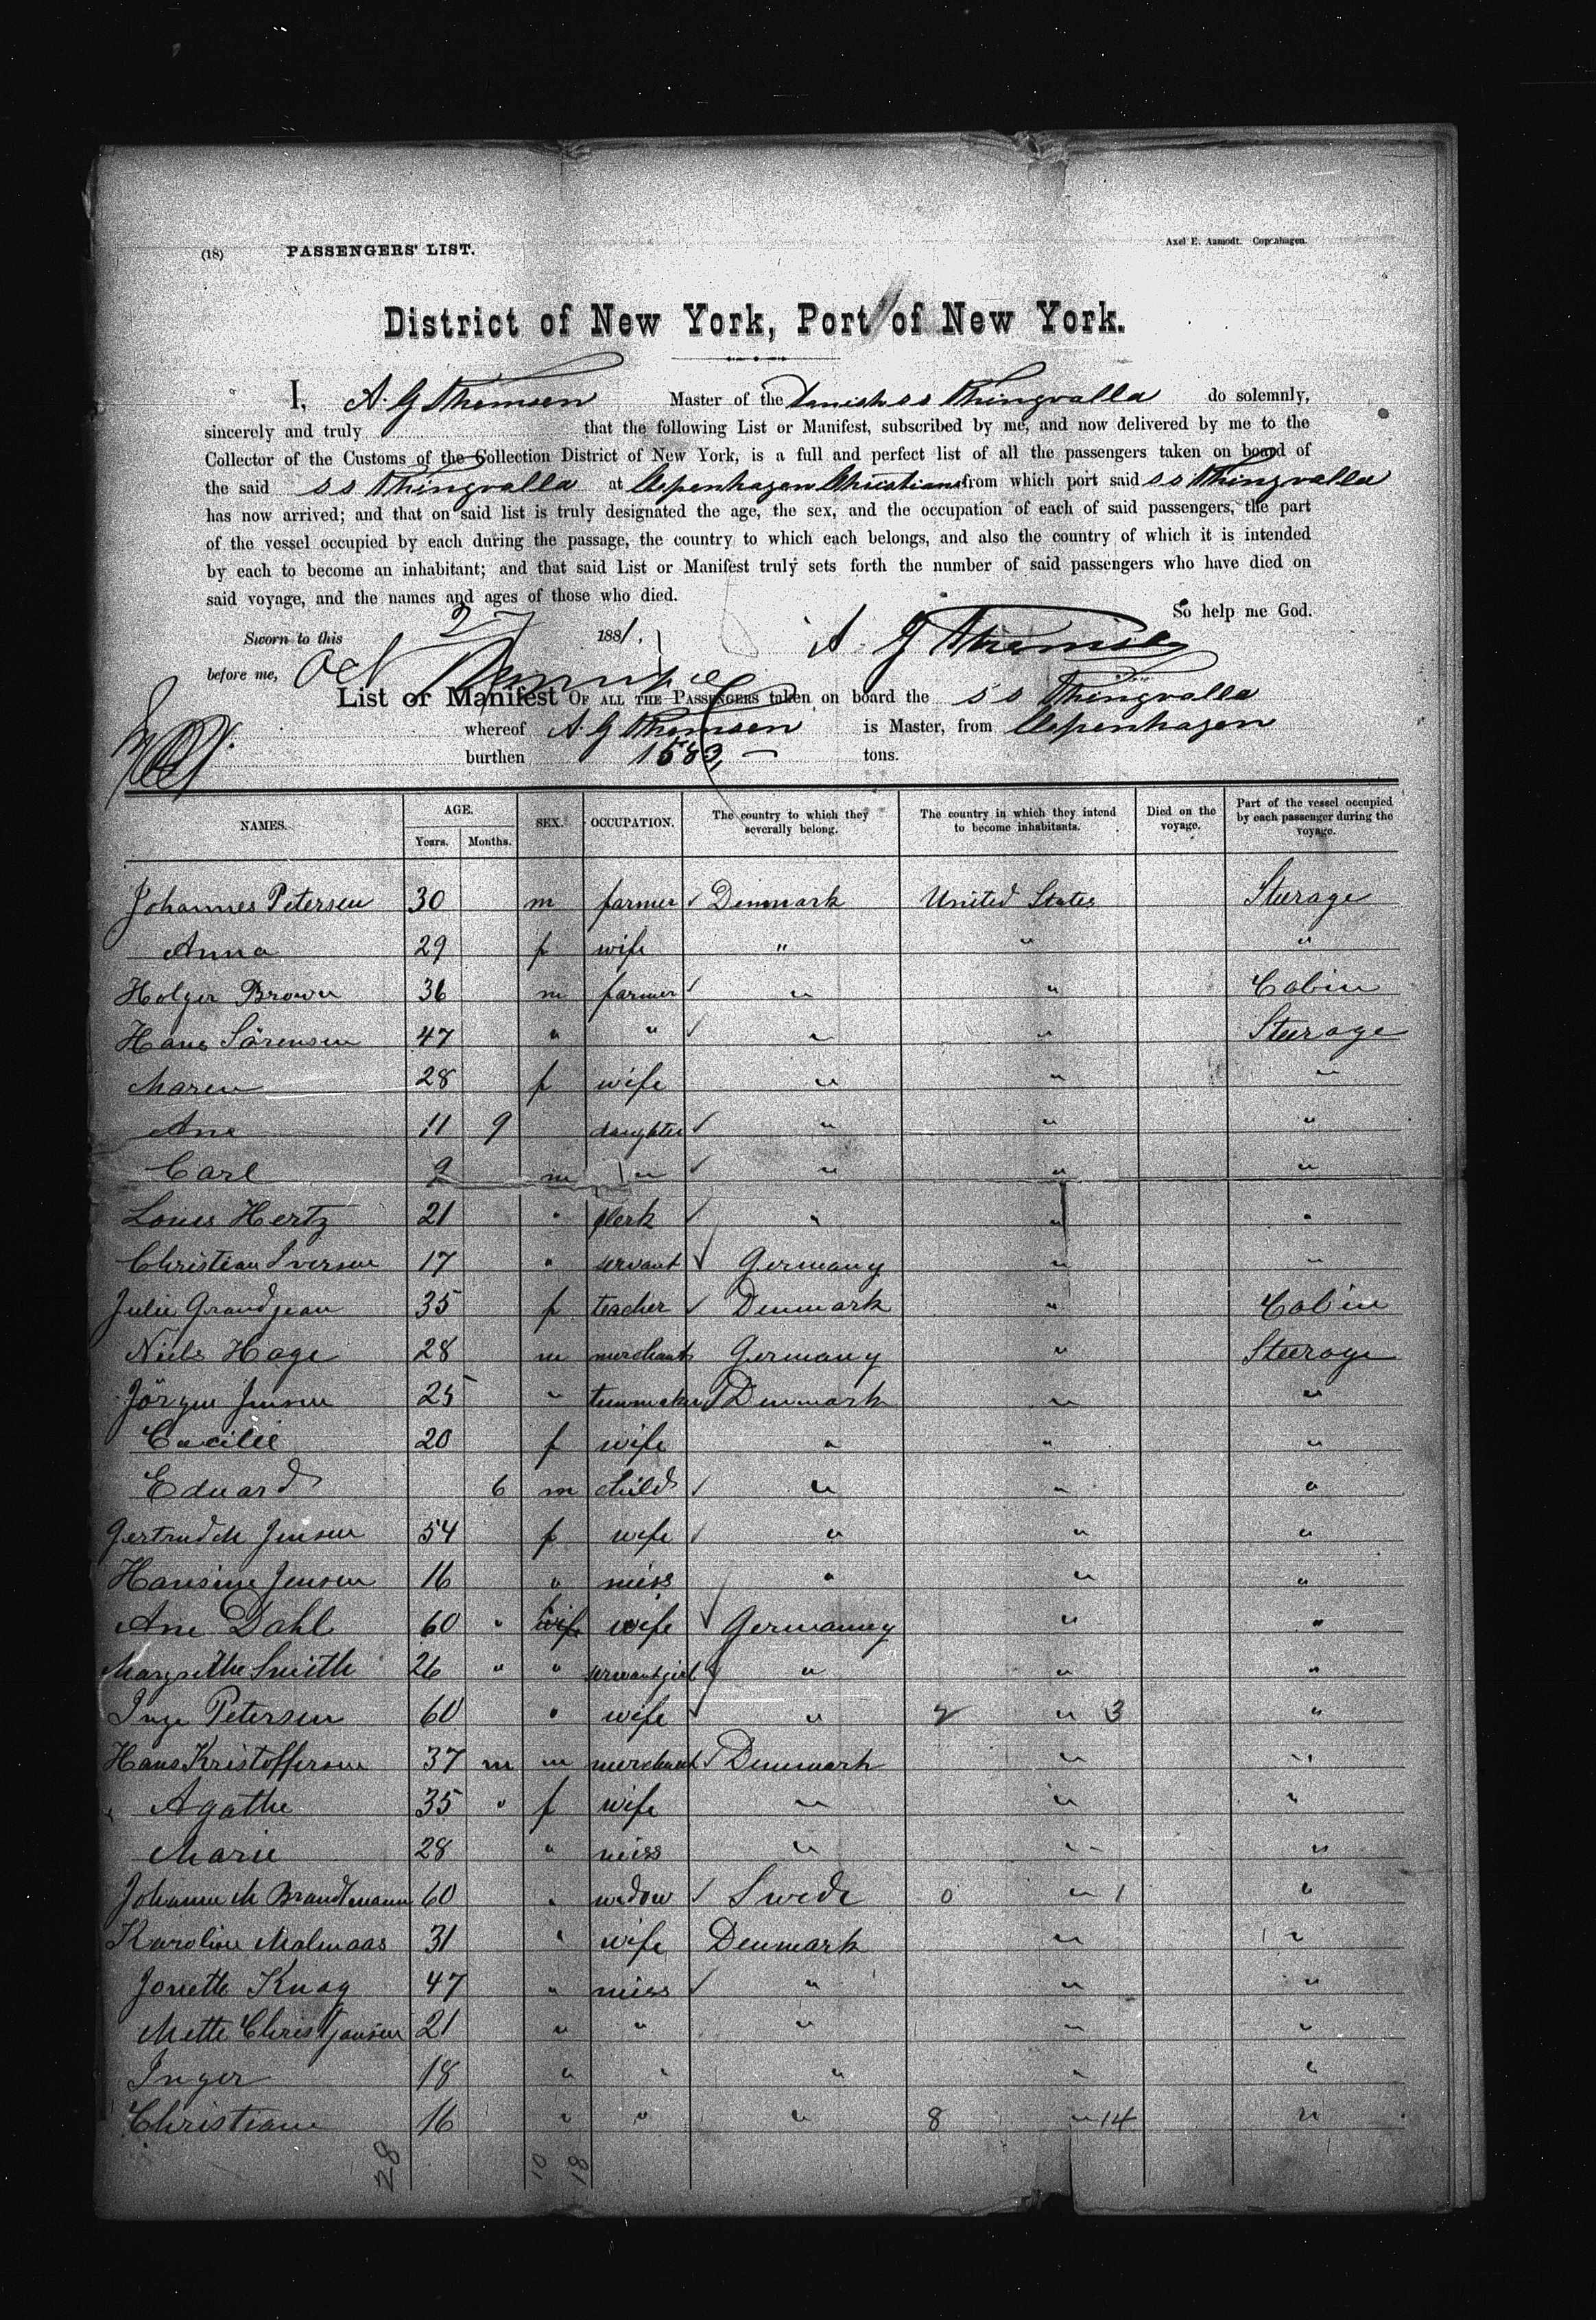 (18) PASSENGERS' LIST. Axel E. Aamodt. Copenhagen.
District of New York, Port of New York.
I, A. G Thomsen Master of the Danish ss Thingvalla do solemnly,
sincerely and truly that the following List or Manifest, subscribed by me, and now delivered by me to the
Collector of the Customs of the Collection District of New York, is a full and perfect list of all the passengers taken on board of
the said ss Thingvalla at Copenhagen Christiana from which port said ss Thingvalla
has now arrived; and that on said list is truly designated the age, the sex, and the occupation of each of said passengers, the part
of the vessel occupied by each during the passage, the country to which each belongs, and also the country of which it is intended
by each to become an inhabitant; and that said List or Manifest truly sets forth the number of said passengers who have died on
said voyage, and the names and ages of those who died.
So help me God.
Sworn to this 27 1881. A G Thomsen
before me, Oct
List or Manifest OF ALL THE PASSENGERS taken on board the ss Thingvalla
whereof A. G Thomsen is Master, from Copenhagen
burthen 1583, — tons.
NAMES. AGE. Years. Months. SEX. OCCUPATION. The country to which they severally belong. The country in which they intend to become inhabitants. Died on the voyage. Part of the vessel occupied by each passenger during the voyage.
Johannes Petersen 30 m farmer ✓ Denmark United States Steerage
Anna 29 f wife " " "
Holger Brown 36 m farmer ✓ " " Cabin
Hans Sörensen 47 " " ✓ " " Steerage
Maren 28 f wife " " "
Ane 11 9 daughter ✓ " " "
Carl 9 m " ✓ " " "
Louis Hertz 21 " clerk ✓ " " "
Christian Iversen 17 " servant ✓ Germany " "
Julie Grandjean 35 f teacher ✓ Denmark " Cabin
Niels Hage 28 m merchant Germany " Steerage
Jörgen Jensen 25 " ✓ Denmark " "
Cæcilie 20 f wife " " "
Eduard 6 m child ✓ " " "
Gertrud M Jensen 54 f wife ✓ " " "
Hansine Jensen 16 " miss " " "
Ane Dahl 60 " wife ✓ Germany " "
Margrethe Smith 26 " " servant girl " " "
Inge Petersen 60 " wife ✓ " 2 " 3 "
Hans Kristoffersen 37 m m merchant ✓ Denmark " "
Agathe 35 " f wife " " "
Marie 28 " miss " " "
Johanne M Brandtmann 60 " widow ✓ Swede 0 " 1 "
Karoline Malmaas 31 " wife Denmark " "
Jonette Knag 47 " miss ✓ " " "
Mette Christjansen 21 " " " " "
Inger 18 " " " " "
Christiane 16 " " " 8 " 14 "
28 10 18